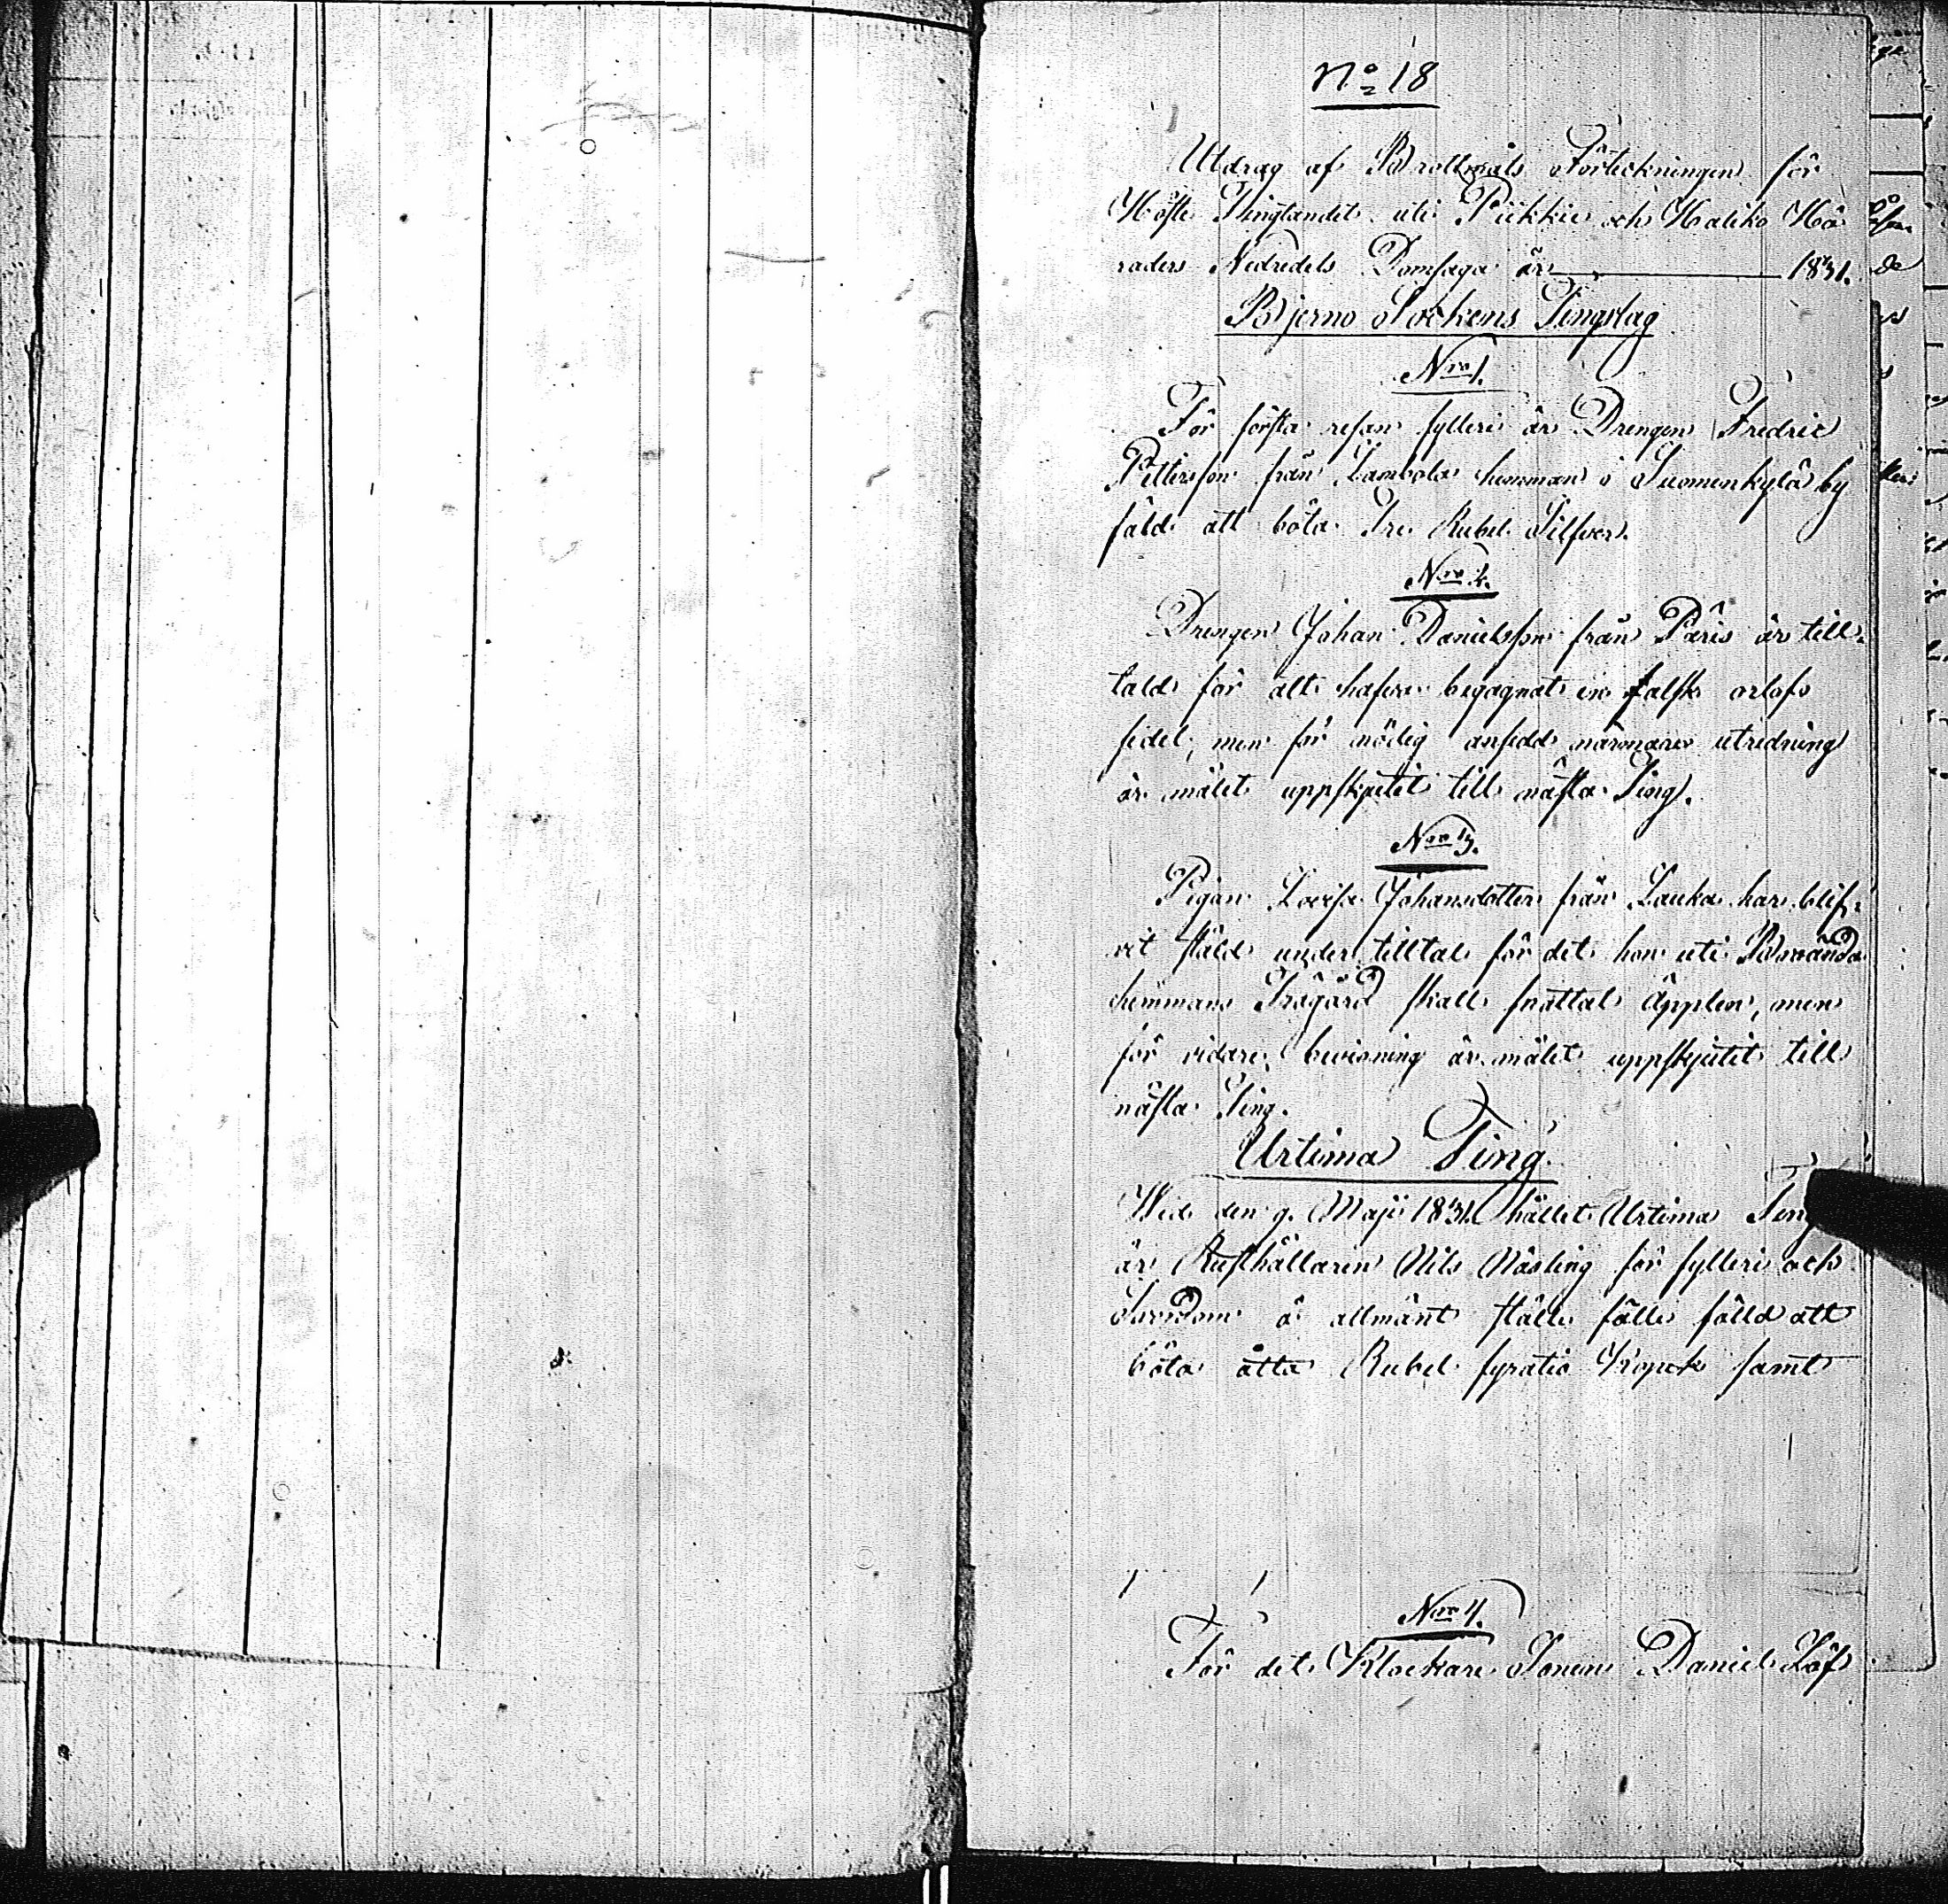 No 18
Utdrag af Brottmåls Förteckningen för
Höste Tinglandet uti Piikkie och Haliko Hä
raders Nedredels Domsaga år 1831.
Bjerno Sockens Tingslag
Nro 1.
För första resan fylleri är Drengen Fredric
Pettersson från Lambola hemman i Suomenkylä by
fäld att böta Tre Rubel Silfver.
Nro 2.
Drengen Johan Danielsson från Päris är till-
tald för att hafva begagnat en falsk orlofs
sedel, men för nödig ansedd närmare utredning
är målet uppskjutit till nästa Ting.
Nro 3.
Pigan Lovisa Johansdotter från Lauka har blif-
vit stäld under tilltal för det hon uti
hemmans Trägård skall snattat Äpplen, men
för vidare bevisning är målet uppskjutit till
nästa Ting.
Urtima Ting.
Wid den 9. Maji 1831 hållet Urtima Ting
är Rusthållaren Nils Näsling för fylleri och
Svordom å allmänt ställe fälld att
böta åtta Rubel fyratio Kopek samt
Nro 4.
För det Klockare Sonen Daniel Löf